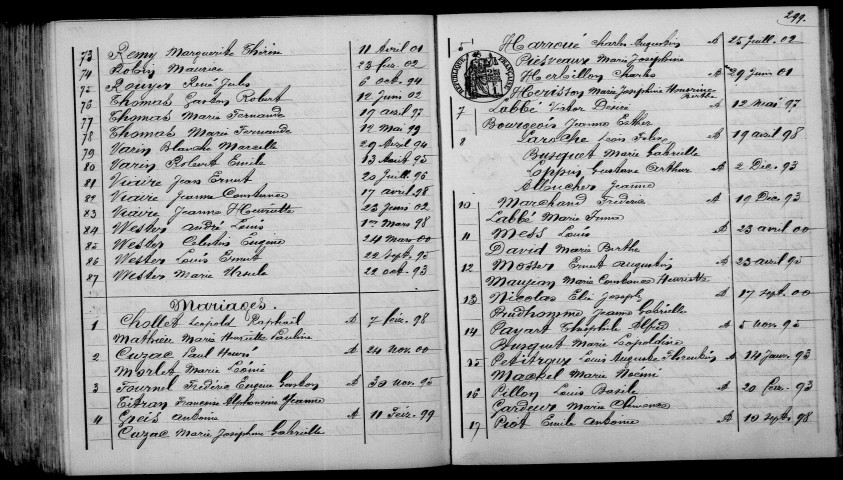 73 Remy Marguerite Thérèse 11 Avril 01
74 Robin Maurice 23 fev. 02
75 Rouyer René Jules 6 oct. 94
76 Thomas Gaston Robert 12 Juin 02
77 Thomas Marie Fernande 19 avril 97
78 Thomas Marie Fernande 12 mai 99
79 Varin Blanche Marcelle 29 Avril 94
80 Varin Robert Emile 13 Août 95
81 Viaire Jean Ernest 20 Juill. 96
82 Viaire Jeanne Constance 17 avril 98
83 Viaire Jeanne Henriette 23 Juin 02
84 Wester André Louis 1er Mars 98
85 Wester Celestin Eugène 24 mars 00
86 Wester Louis Ernest 22 sept. 95
87 Wester Marie Ursule 22 oct. 93
Mariages.
1 Chollet Leopold Raphaël A 7 févr. 98
Mathieu Marie Henriette Pauline
2 Cuzac Paul Henri A 24 nov. 00
Morlet Marie Léonie
3 Fournel Frédéric Eugène Gaston A 30 nov. 95
Titran Françoise Alphonsine Jeanne
4 Greis Antoine A 11 Févr. 99
Cuzac Marie Joséphine Gabrielle
299.
5 Harroué Charles Augustin A 25 Juill. 02
Presveaux Marie Joséphine
Herbillon Charles A 29 Juin 01
Herisson Marie Joséphine Honorine Berthe
7 Labbé Victor Désiré A 12 Mai 97
Bourgeois Jeanne Esther
8 Laroche Léon Jules A 19 avril 98
Busquet Marie Gabrielle
Loppin Gustave Arthur A 2 Déc. 93
Moucher Jeanne
10 Marchand Frédéric A 19 Déc. 93
Labbé Marie Irma
11 Mess Louis A 23 avril 00
David Marie Berthe
12 Moster Ernest Augustin A 23 avril 95
Maujon Marie Constance Henriette
13 Nicolas Elie Joseph A 17 sept. 00
Prudhomme Jeanne Gabrielle
14 Payart Théophile Alfred A 5 nov. 95
Busquet Marie Léopoldine
15 Petitryaux Louis Auguste Florentin A 14 Janv. 93
Mackel Marie Noémi
16 Pillon Louis Basile A 20 févr. 93
Gardeur Marie Clémence
17 Piot Emile Antoine A 10 sept. 98